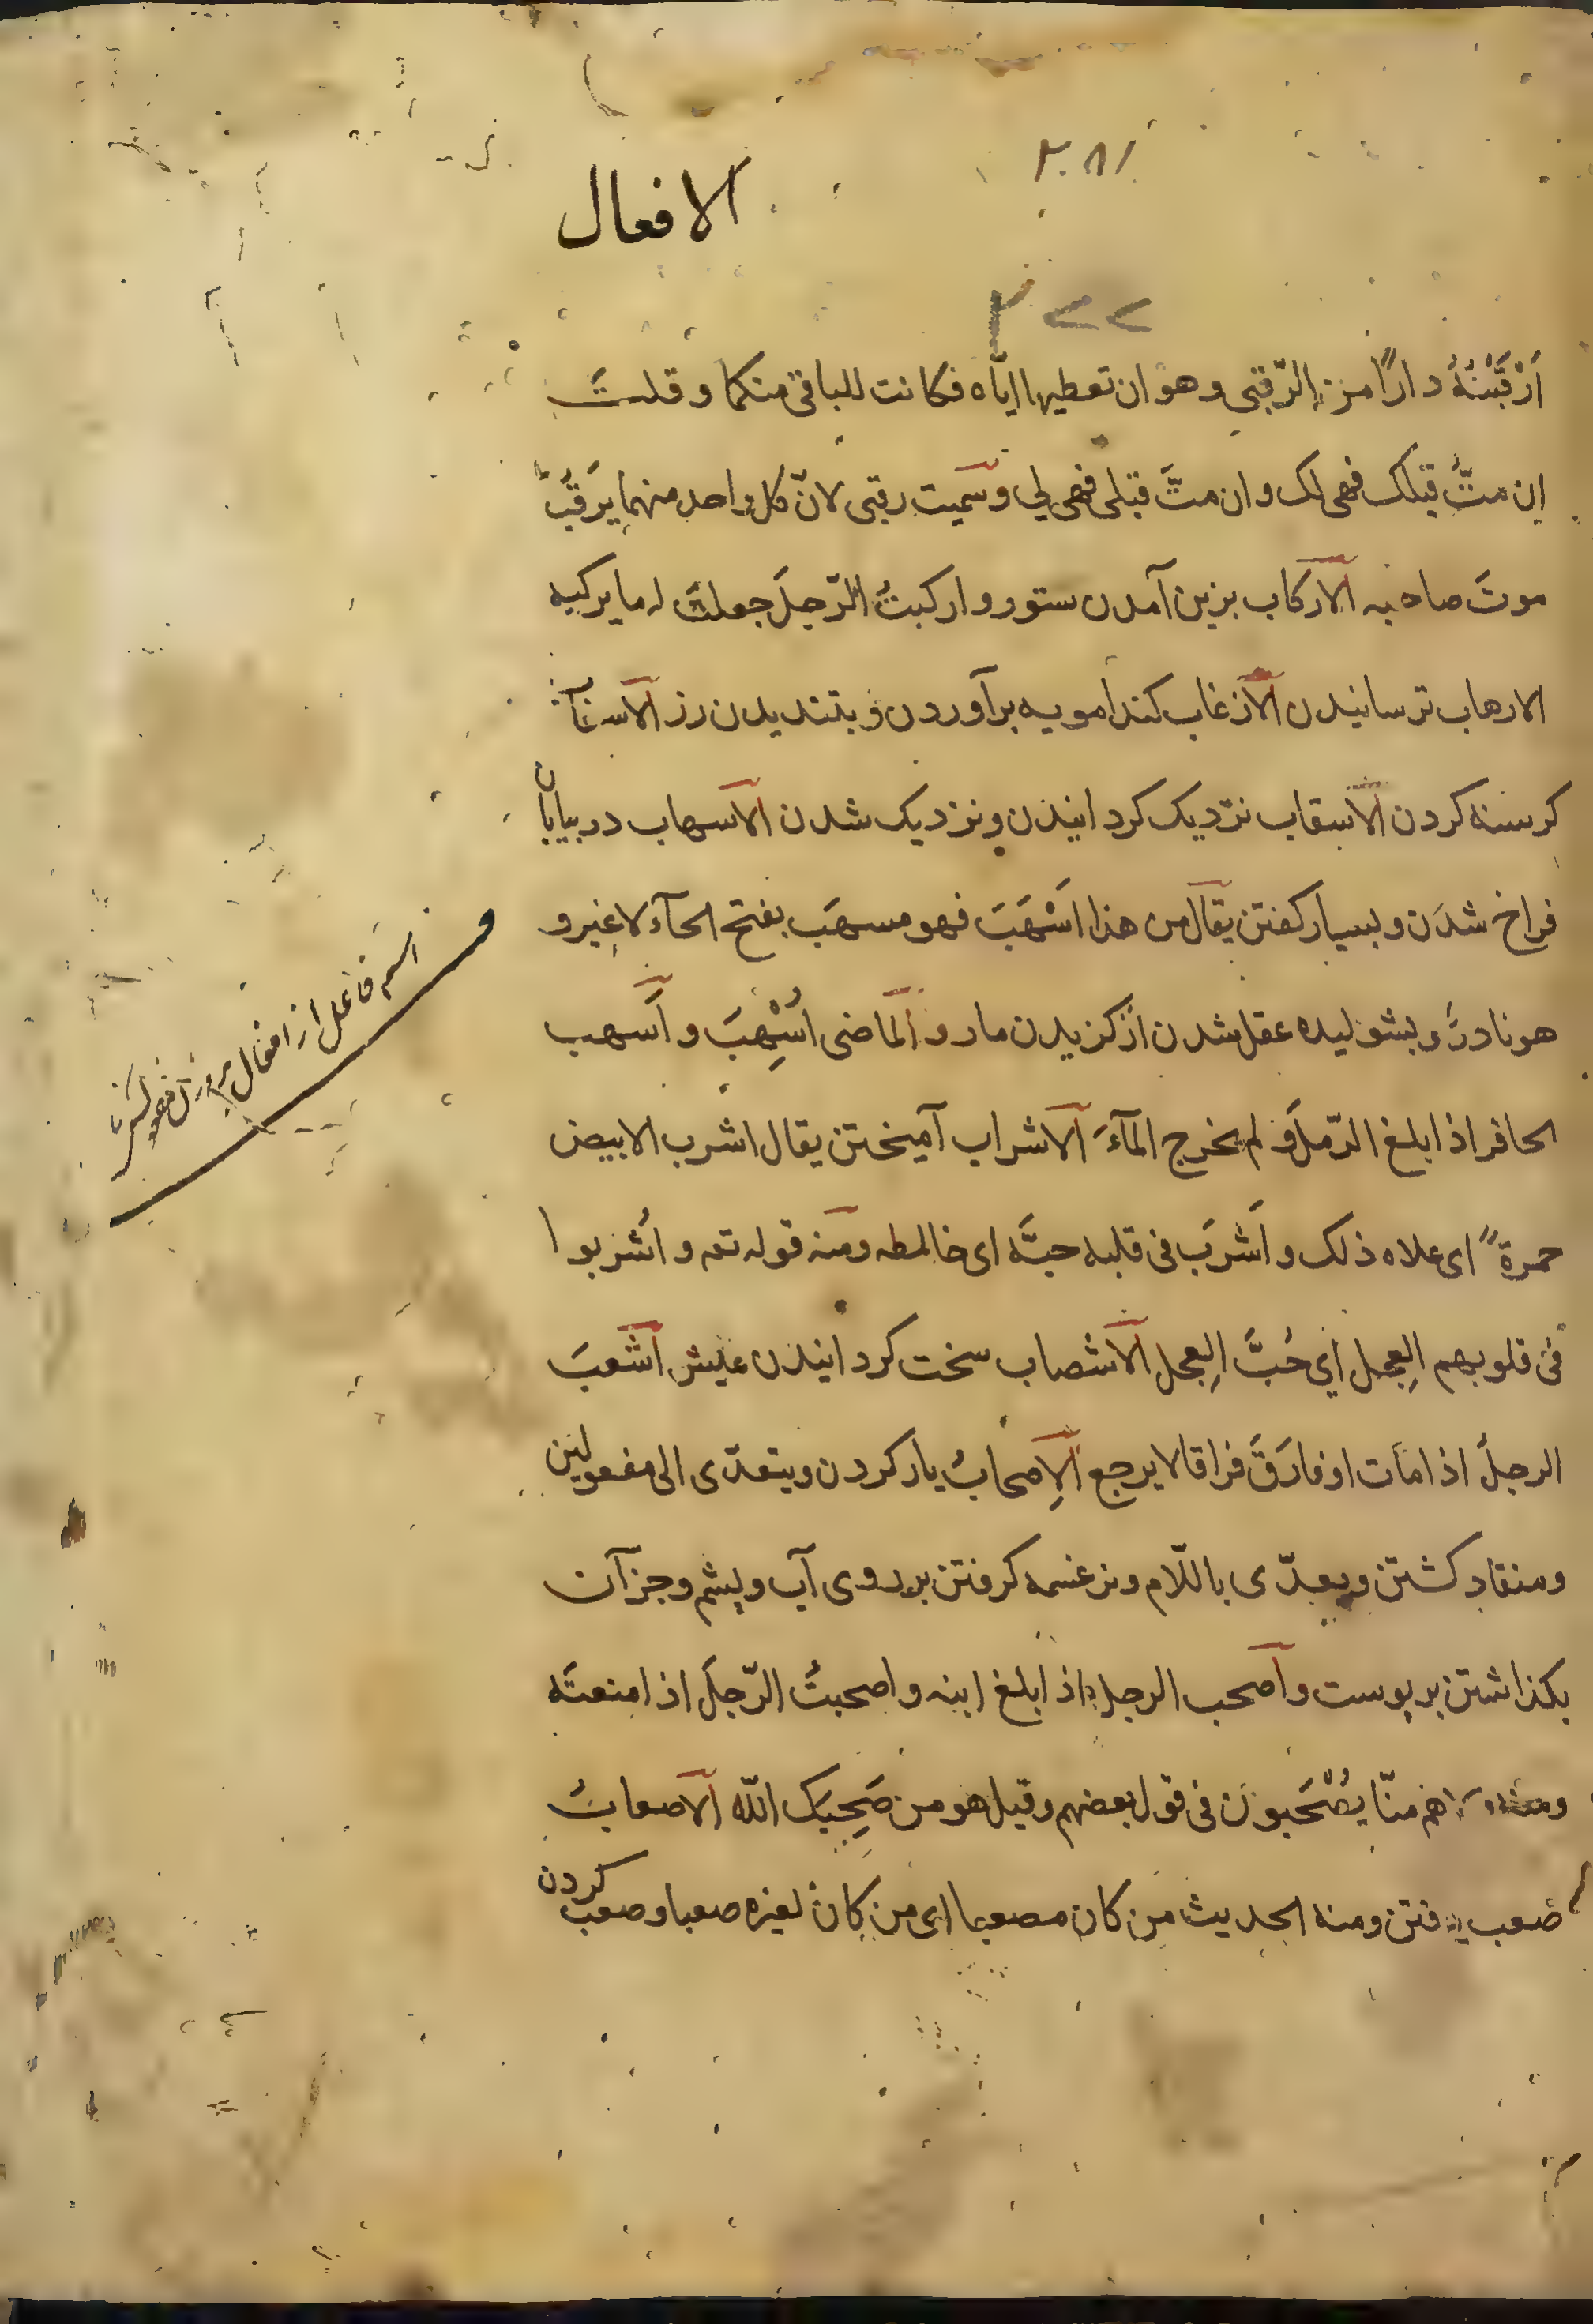 ٢٠٨١
الافعال
اَرْقَبْتُهُ دارًا من الرّقبى وهو ان تعطيها ايّاه فكانت للباقى منكما وقلتَ
ان متُّ قبلك فهى لك وان متَّ قبلى فهى لي وسمّيت رقبى لانّ كل واحد منهما يَرقُبُ
موتَ صاحبه الارکاب بزین آمدن ستور و ارکبتُ الرّجلَ جعلتُ له ما یرکبه
الارهاب ترسانیدن الازغاب کندامویه برآوردن و بتندیدن رز الاسغاب
کرسنه کردن الاسقاب نزدیک کردانیدن و نزدیک شدن الاسهاب در بیابان
فراخ شدن و بسیار کفتن یقال من هذا اَسْهَبَ فهو مسهَب بفتح الهآء لا غیر و
هو نادرٌ و بشولیده عقل شدن از کزیدن مار و الماضی اُسْهِبَ و اَسهب
الحافر اذا بلغ الرّملَ و لم یخرج المآءَ الاشراب آمیختن یقال اشرب الابیض
حمرةً ای علاه ذلک و اُشرَبَ فی قلبه حبَّه ای خالطه ومنه قوله تعه و اُشربوا
فی قلوبهم العِجل ای حُبَّ العِجل الاشصاب سخت کردانیدن عیش اَشعبَ
الرجلُ اذا مات او فارَقَ فراقا لا یرجع الاِصحابُ یار کردن و یتعدّی الی مفعولین
ومنقاد کشتن و یعدّی باللّام وبزغسمه کرفتن بر روی آب و پشم و جز آن
بکذاشتن بر پوست و اَصحب الرجل اذا بلغ ابنه و اصحبتُ الرّجلَ اذا منعتَه
هم منّا یُصْحَبون فی قول بعضهم وقیل هو من صَحِبَک اللّه الاصعابُ
صعب یافتن ومنه الحدیث من کان مصعبا ای من کان لغیره صعبا و صعب کردن
اسم فاعل از افعال بروزن